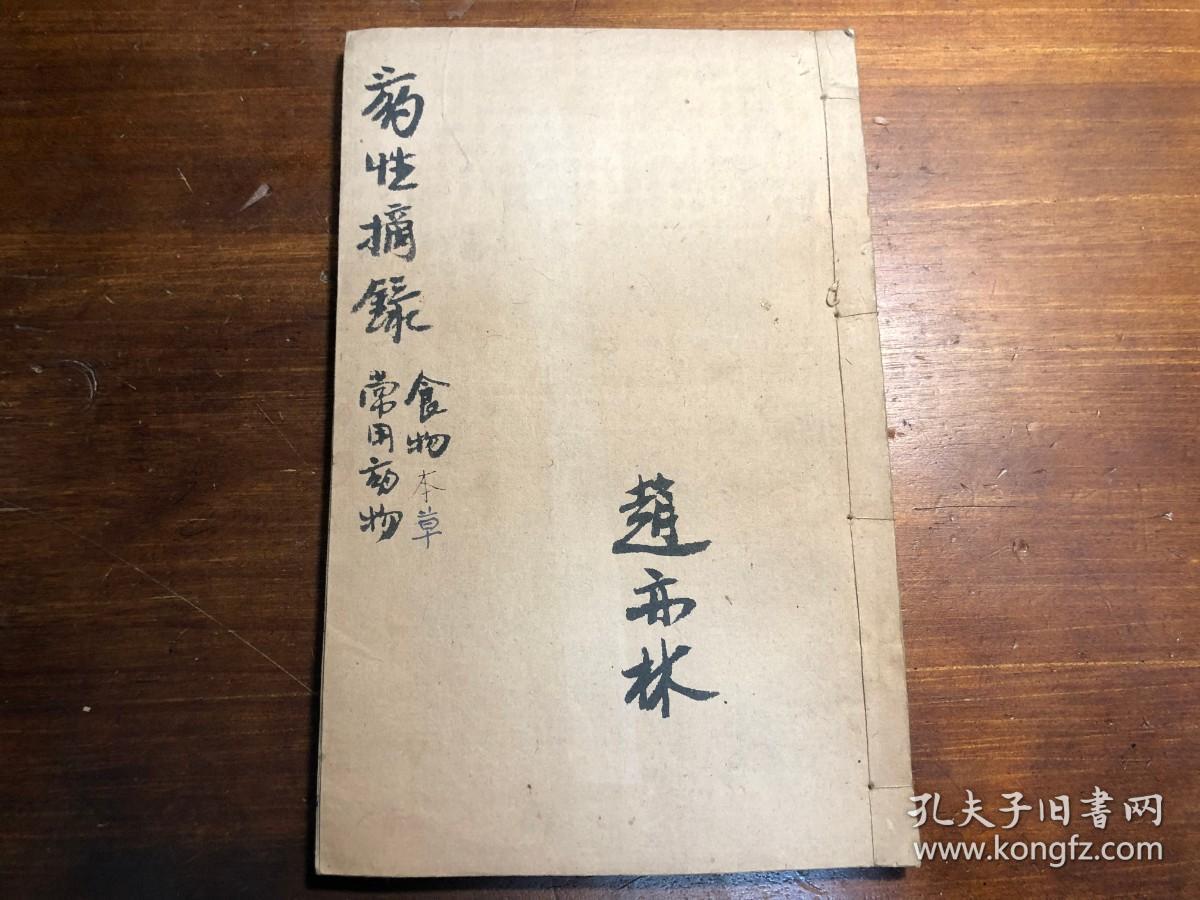 趙亦林
药性摘錄
食物本草
常用药物
孔夫子旧書网
www.kongfz.com